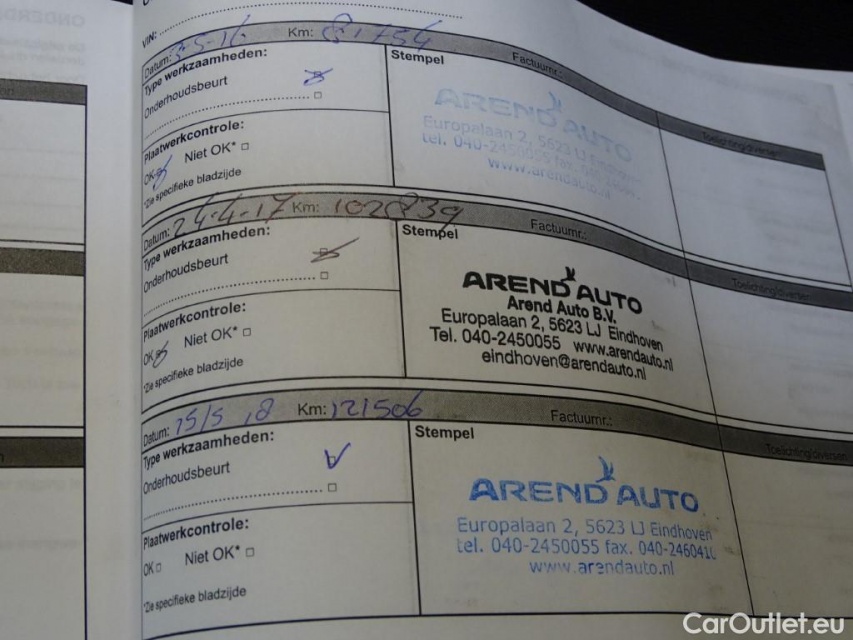 VIN:
Datum: 3-5-16 Km: 81754 Factuurnr.: Toelichting/diversen
Type werkzaamheden: Stempel
Onderhoudsbeurt
Plaatwerkcontrole:
OK Niet OK*
*Zie specifieke bladzijde
AREND AUTO
Europalaan 2, 5623 LJ Eindhoven
tel. 040-2450055 fax. 040-
www.arendauto.nl
Datum: 24-4-17 Km: 102839 Factuurnr.: Toelichting/diversen
Type werkzaamheden: Stempel
Onderhoudsbeurt
Plaatwerkcontrole:
OK Niet OK*
*Zie specifieke bladzijde
AREND AUTO
Arend Auto B.V.
Europalaan 2, 5623 LJ Eindhoven
Tel. 040-2450055 www.arendauto.nl
eindhoven@arendauto.nl
Datum: 15/5 18 Km: 121506 Factuurnr.: Toelichting/diversen
Type werkzaamheden: Stempel
Onderhoudsbeurt
Plaatwerkcontrole:
OK Niet OK*
*Zie specifieke bladzijde
AREND AUTO
Europalaan 2, 5623 LJ Eindhoven
tel. 040-2450055 fax. 040-2460410
www.arendauto.nl
CarOutlet.eu